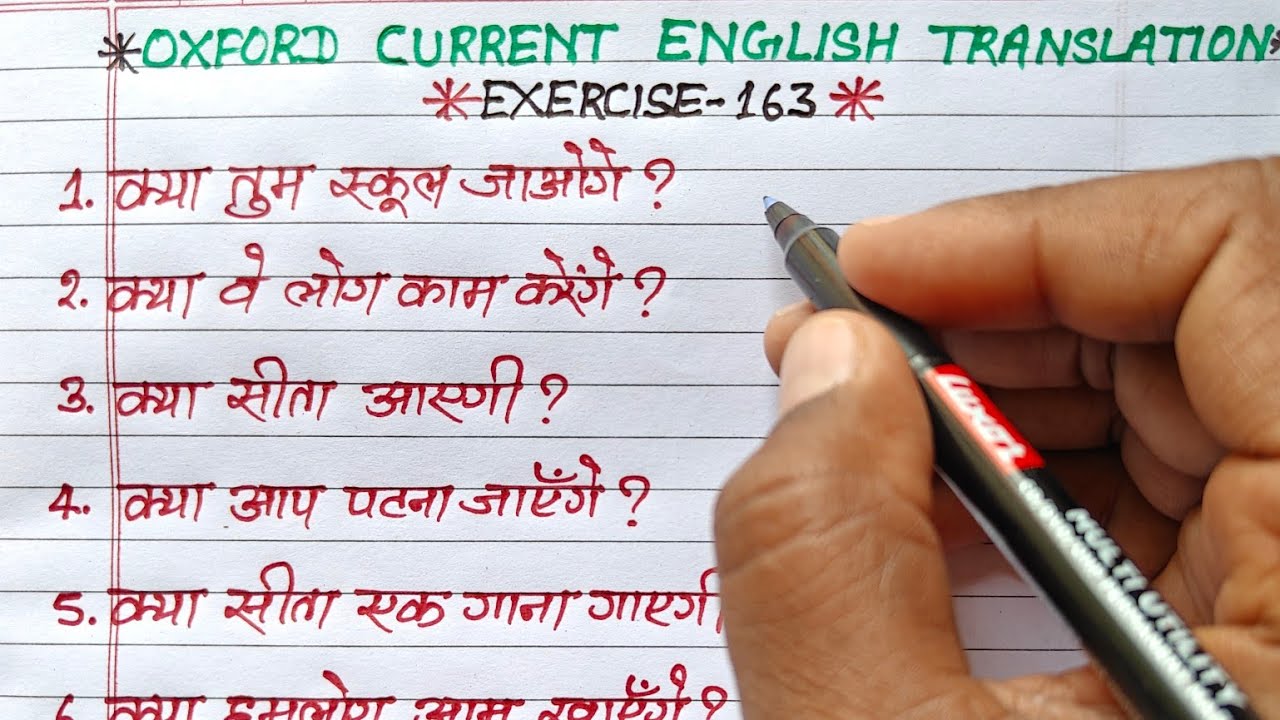 *OXFORD CURRENT ENGLISH TRANSLATION*
*EXERCISE-163*
1. क्या तुम स्कूल जाओगे ?
2. क्या वे लोग काम करेंगे ?
3. क्या सीता आएगी ?
4. क्या आप पटना जाएँगे ?
5. क्या सीता एक गाना गाएगी
6. क्या हमलोग आम खाएँगे ?
Luxor
MULTI UTILITY